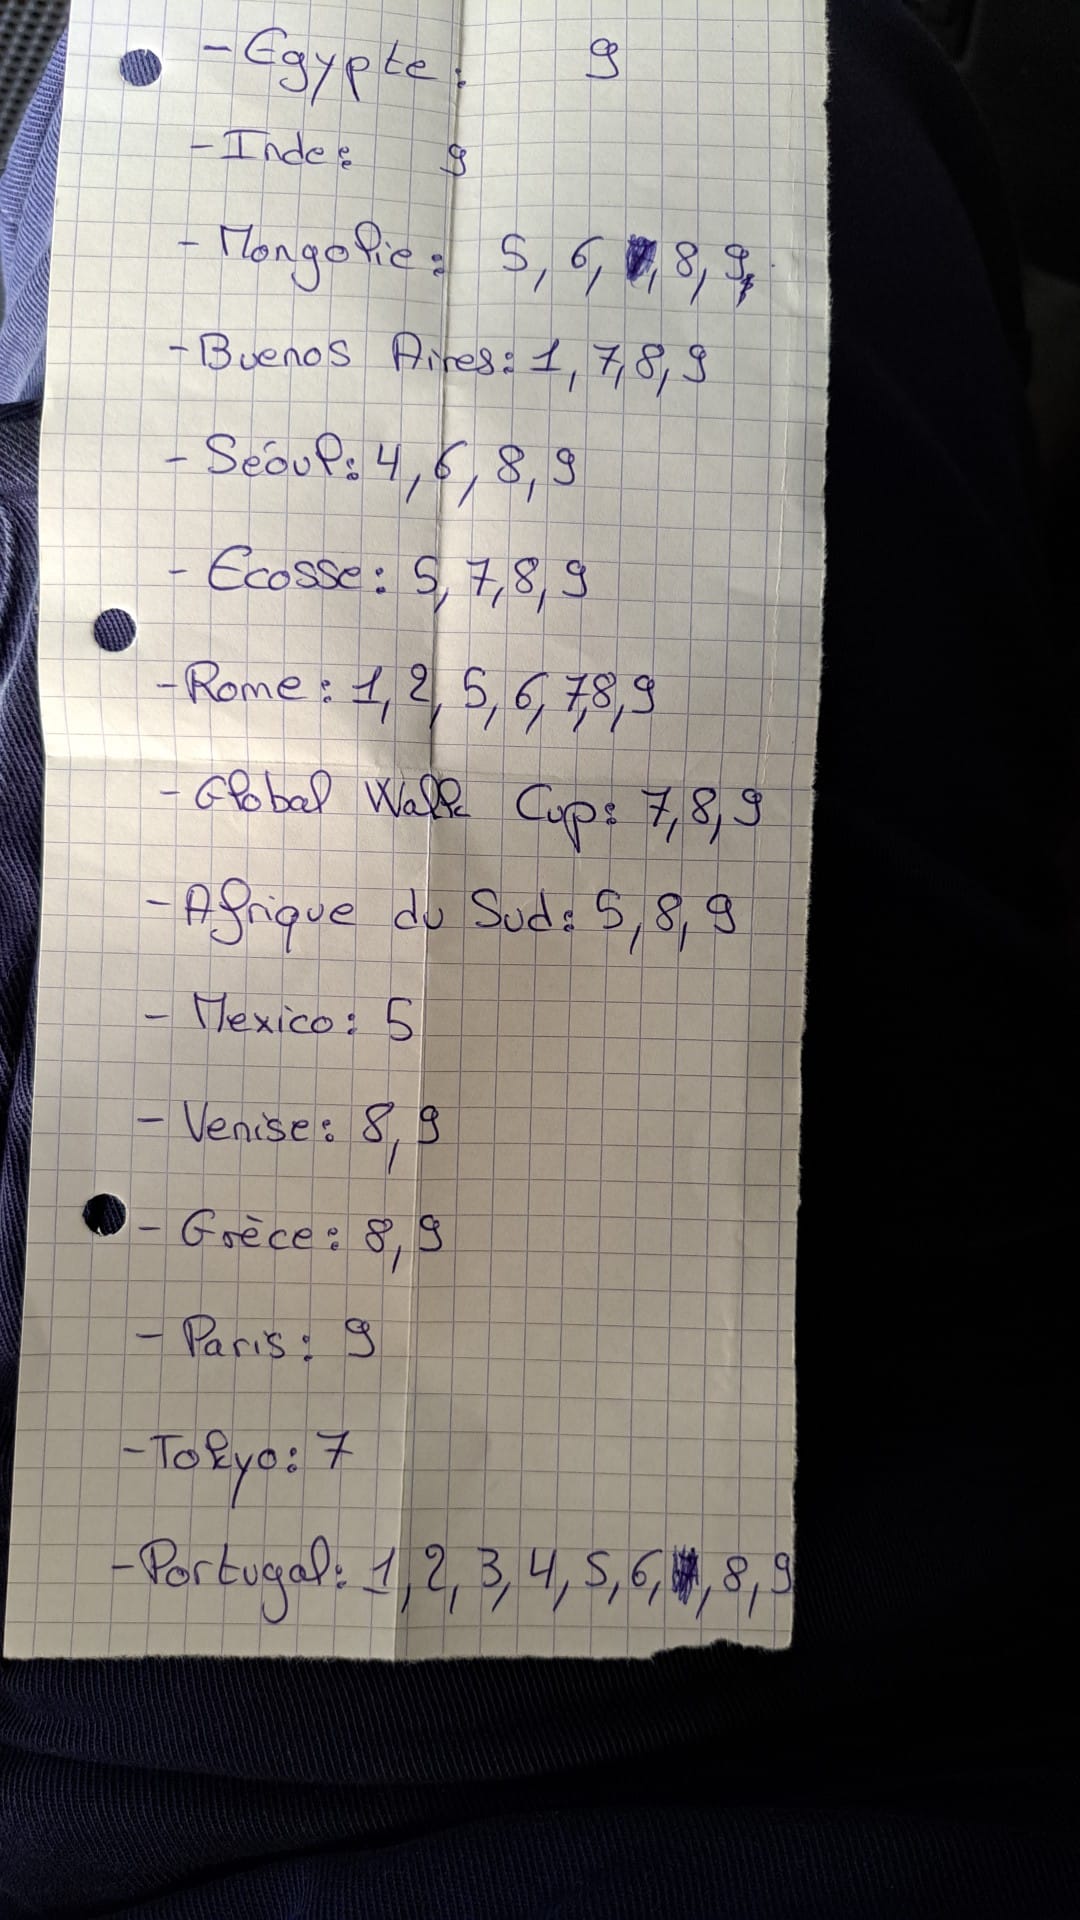 - Egypte: 9
- Inde: 9
- Mongolie: 5, 6, 8, 9,
- Buenos Aires: 1, 7, 8, 9
- Séoul: 4, 6, 8, 9
- Ecosse: 5, 7, 8, 9
- Rome: 1, 2, 5, 6, 7, 8, 9
- Global Walk Cup: 7, 8, 9
- Afrique du Sud: 5, 8, 9
- Mexico: 5
- Venise: 8, 9
- Grèce: 8, 9
- Paris: 9
- Tokyo: 7
- Portugal: 1, 2, 3, 4, 5, 6, 8, 9